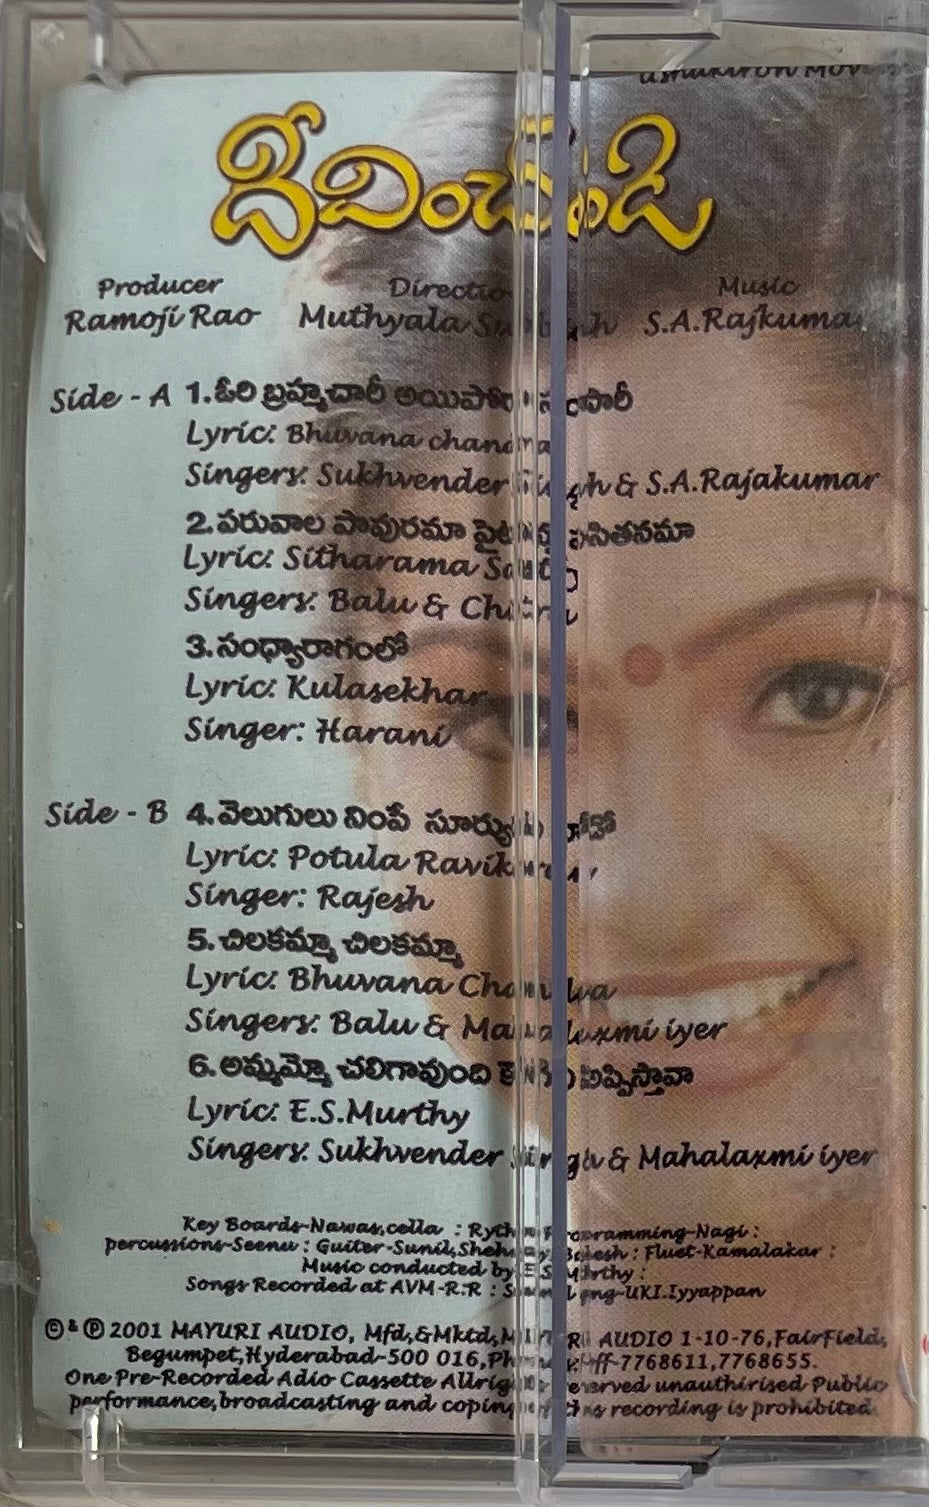 ushakiron Mov
దీవించండి
Producer Direction Music
Ramoji Rao Muthyala Subbaiah S.A.Rajkumar
Side - A 1.ఓరి బ్రహ్మచారీ అయిపోరా సంసారీ
Lyric: Bhuvana chandra
Singers: Sukhvender Singh & S.A.Rajakumar
2.పరువాల పావురమా పసితనమా
Lyric: Sitharama Sastry
Singers: Balu & Chitra
3.సంధ్యారాగంలో
Lyric: Kulasekhar
Singer: Harani
Side - B 4.వెలుగులు నింపే
Lyric: Potula Ravikiran
Singer: Rajesh
5.చిలకమ్మా చిలకమ్మా
Lyric: Bhuvana Chandra
Singers: Balu & Mahalaxmi iyer
6.అమ్మమ్మో చలిగావుంది ఇప్పిస్తావా
Lyric: E.S.Murthy
Singers: Sukhvender Singh & Mahalaxmi iyer
Key Boards-Nawas,cella : Rythm Programming-Nagi :
percussions-Seenu : Guiter-Sunil, Balesh : Fluet-Kamalakar :
Music conducted by E.S.Murthy :
Songs Recorded at AVM-R.R : -UKI.Iyyappan
© & ℗ 2001 MAYURI AUDIO, Mfd,&Mktd,MAYURI AUDIO 1-10-76,FairField,
Begumpet,Hyderabad-500 016, Off-7768611,7768655.
One Pre-Recorded Adio Cassette Allrights reserved unauthirised Public
performance,broadcasting and coping of this recording is prohibited.